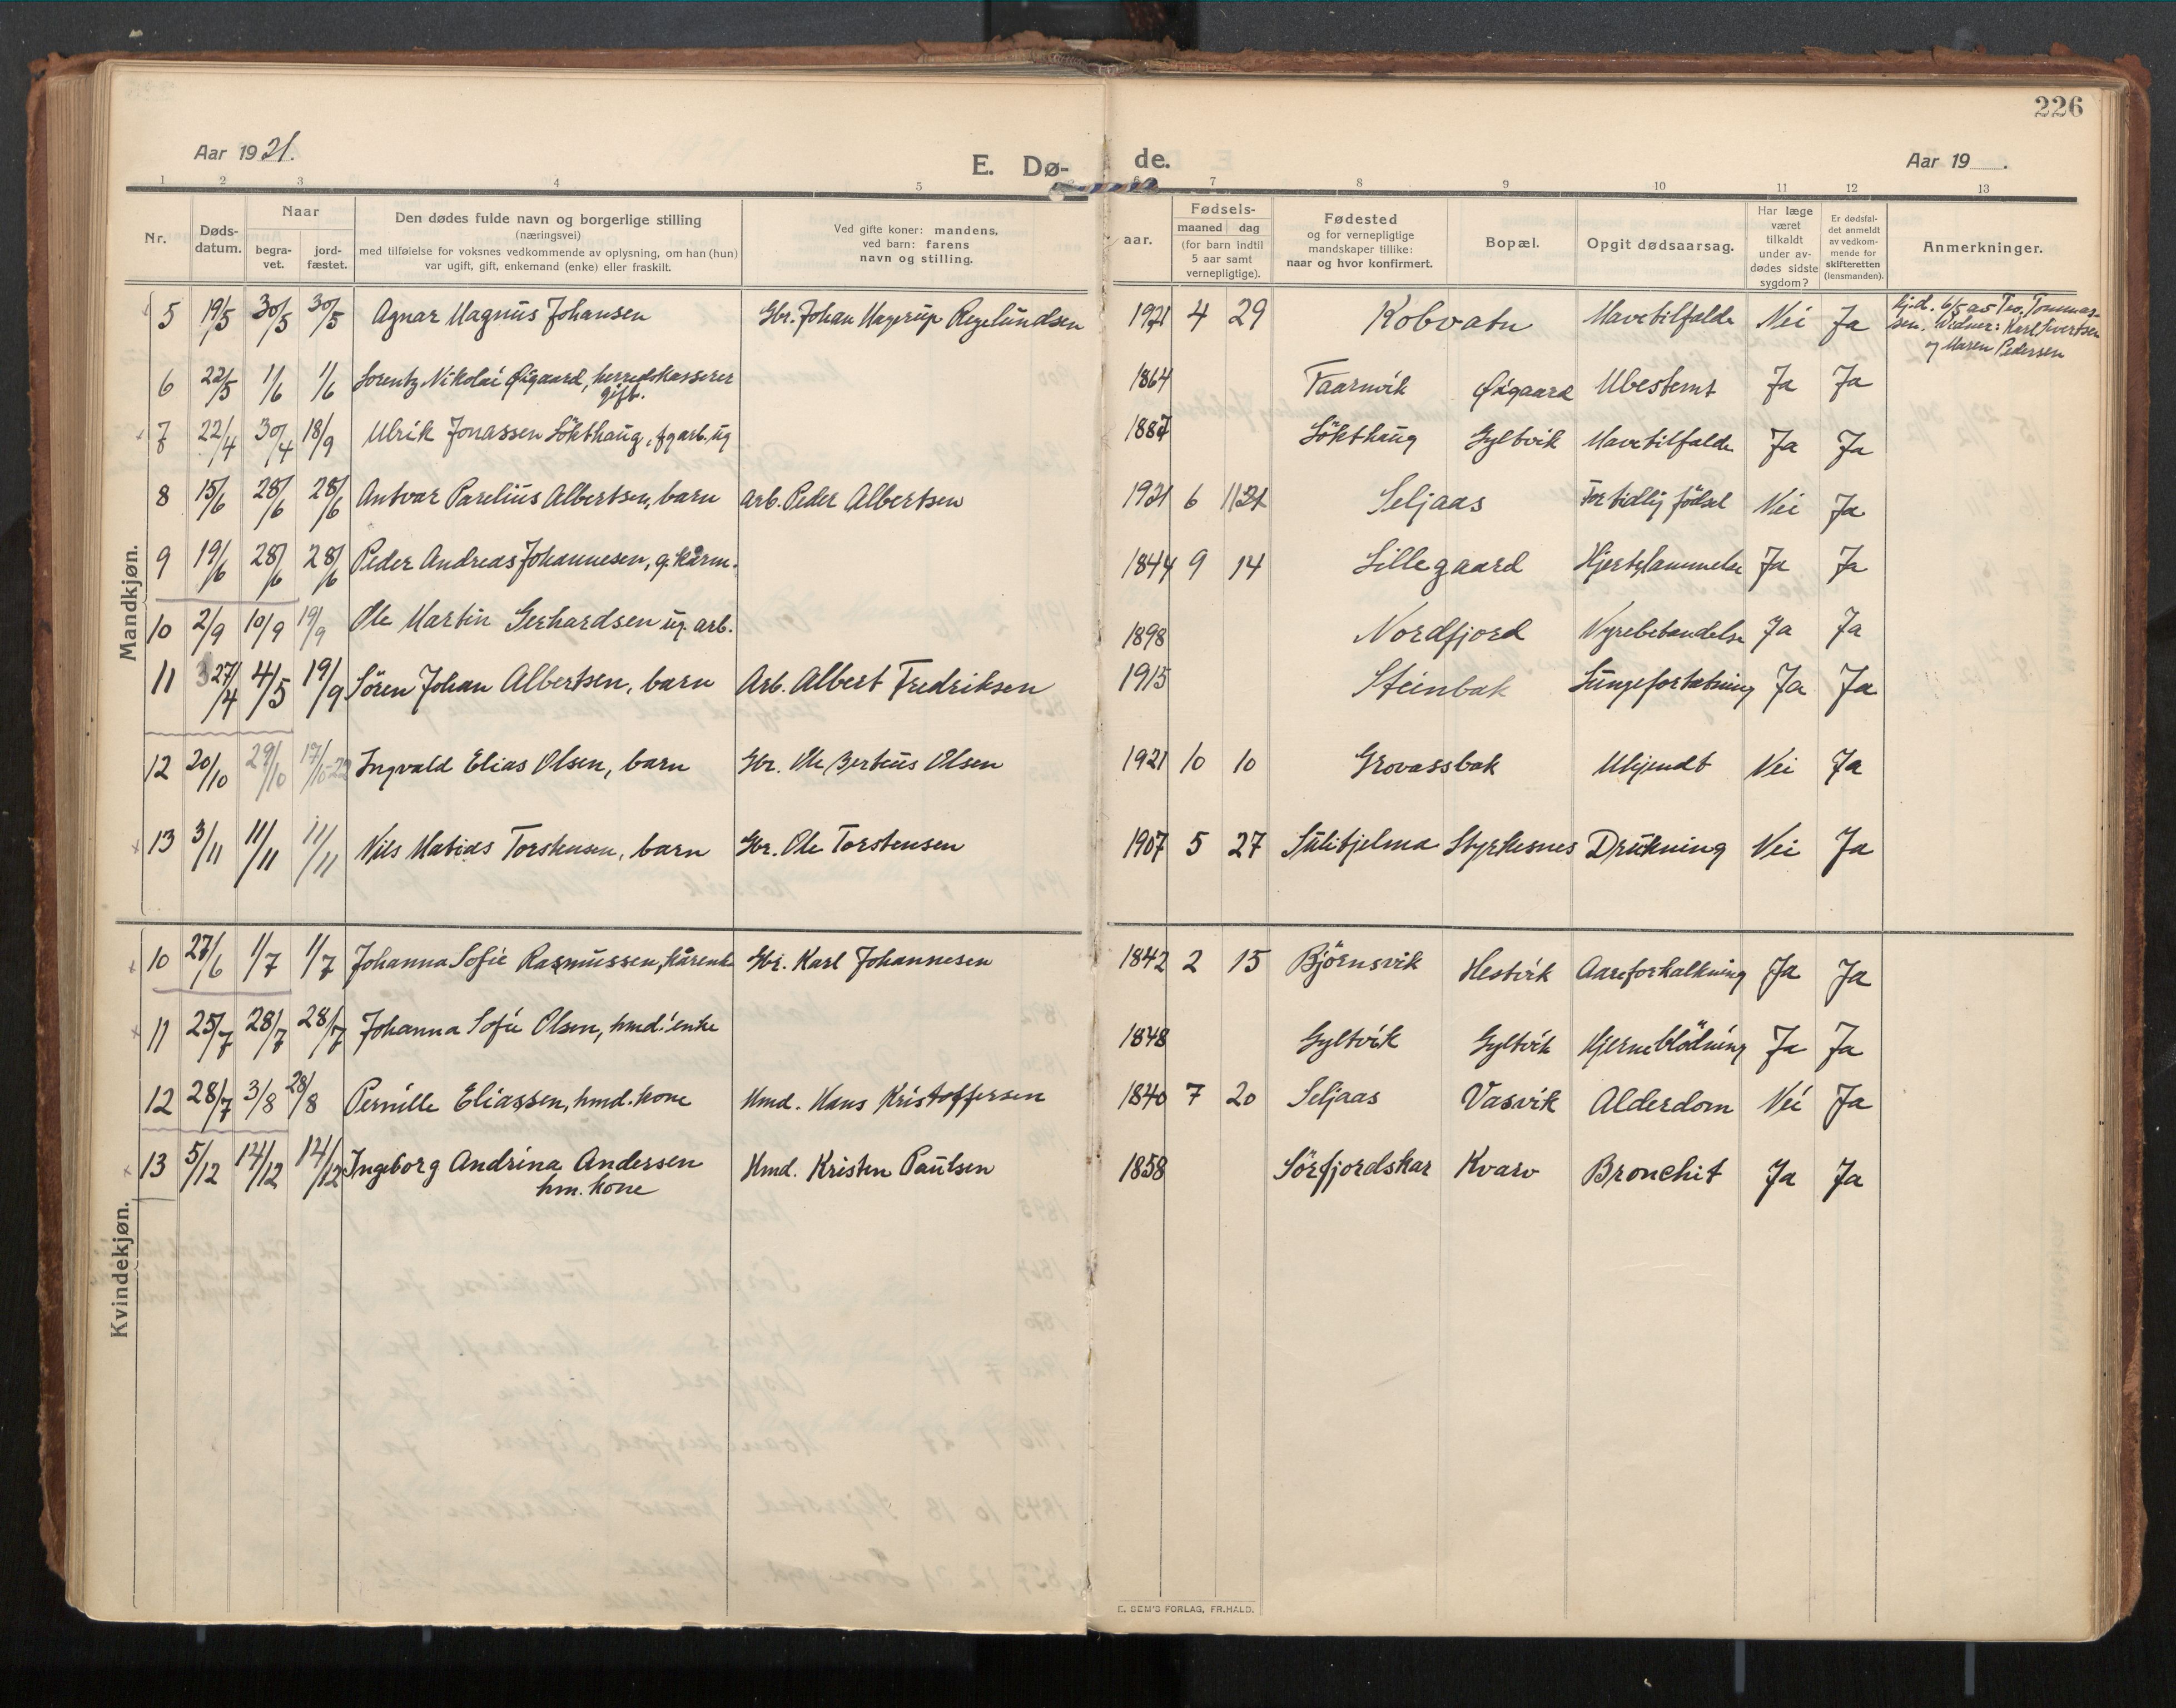 226
Aar 1921.
E. Dø-
de.
Aar 19 .
1 2 3 4 5 6 7 8 9 10 11 12 13
Nr.
Døds-
datum.
Naar
begra-
vet.
jord-
fæstet.
Den dødes fulde navn og borgerlige stilling
(næringsvei)
med tilføielse for voksnes vedkommende av oplysning, om han (hun)
var ugift, gift, enkemand (enke) eller fraskilt.
Ved gifte koner: mandens,
ved barn: farens
navn og stilling.
aar.
Fødsels-
maaned dag
(for barn indtil
5 aar samt
vernepligtige).
Fødested
og for vernepligtige
mandskaper tillike:
naar og hvor konfirmert.
Bopæl.
Opgit dødsaarsag.
Har læge
været
tilkaldt
under av-
dødes sidste
sygdom?
Er dødsfal-
det anmeldt
av vedkom-
mende for
skifteretten
(lensmanden).
Anmerkninger.
Mandkjøn.
5 19/5 30/5 30/5 Agnar Magnus Johansen Gbr. Johan Hagerup Regelundsen 1921 4 29 Kobvatn Mavetilfælde Nei Ja Hj.d. 6/5 av Teo. Tommas-
sen. Vidner: Karl Sivertsen
og Maren Pedersen
6 22/5 1/6 1/6 Lorentz Nikolai Øigaard, herredskasserer 1864 Taarnvik Øigaard Ubestemt Ja Ja
gift.
7 22/4 30/4 18/9 Ulrik Jonassen Løkthaug, fg arb. ug 1887 Løkthaug Gyltvik Mavetilfælde Ja Ja
8 15/6 28/6 28/6 Antvar Parelius Albertsen, barn arb. Peder Albertsen 1921 6 Seljaas For tidlig fødsel Nei Ja
9 19/6 28/6 28/6 Peder Andreas Johannesen, g. kårm. 1844 9 14 Lillegaard Hjertelammelse Ja Ja
10 2/9 10/9 19/9 Ole Martin Gerhardsen ug. arb. 1898 Nordfjord Nyrebetændelse Ja Ja
11 27/4 4/5 19/9 Søren Johan Albertsen, barn Arb. Albert Fredriksen 1915 Steinbak Lungefortætning Ja Ja
12 20/10 29/10 17/10-22 Ingvald Elias Olsen, barn Gbr. Ole Berteus Olsen 1921 10 10 Grovassbak Ukjendt Nei Ja
13 3/11 11/11 11/11 Nils Matias Torstensen, barn Gbr. Ole Torstensen 1907 5 27 Sulitjelma Styrkesnes Drukning Nei Ja
Kvindekjøn.
10 27/6 1/7 1/7 Johanna Sofie Rasmussen, kårenke Gbr. Karl Johannesen 1842 2 15 Bjørnsvik Hestvik Aareforkalkning Ja Ja
11 25/7 28/7 28/7 Johanna Sofie Olsen, hmd. enke 1848 Gyltvik Gyltvik Hjerneblødning Ja Ja
12 28/7 3/8 28/8 Pernille Eliassen, hmd. kone Hmd. Hans Kristoffersen 1840 7 20 Seljaas Vasvik Alderdom Nei Ja
13 5/12 14/12 14/12 Ingeborg Andrina Andersen Hmd. Kristen Paulsen 1858 Sörfjordskar Kvarv Bronchit Ja Ja
hm. kone
E. SEM'S FORLAG, FR.HALD.